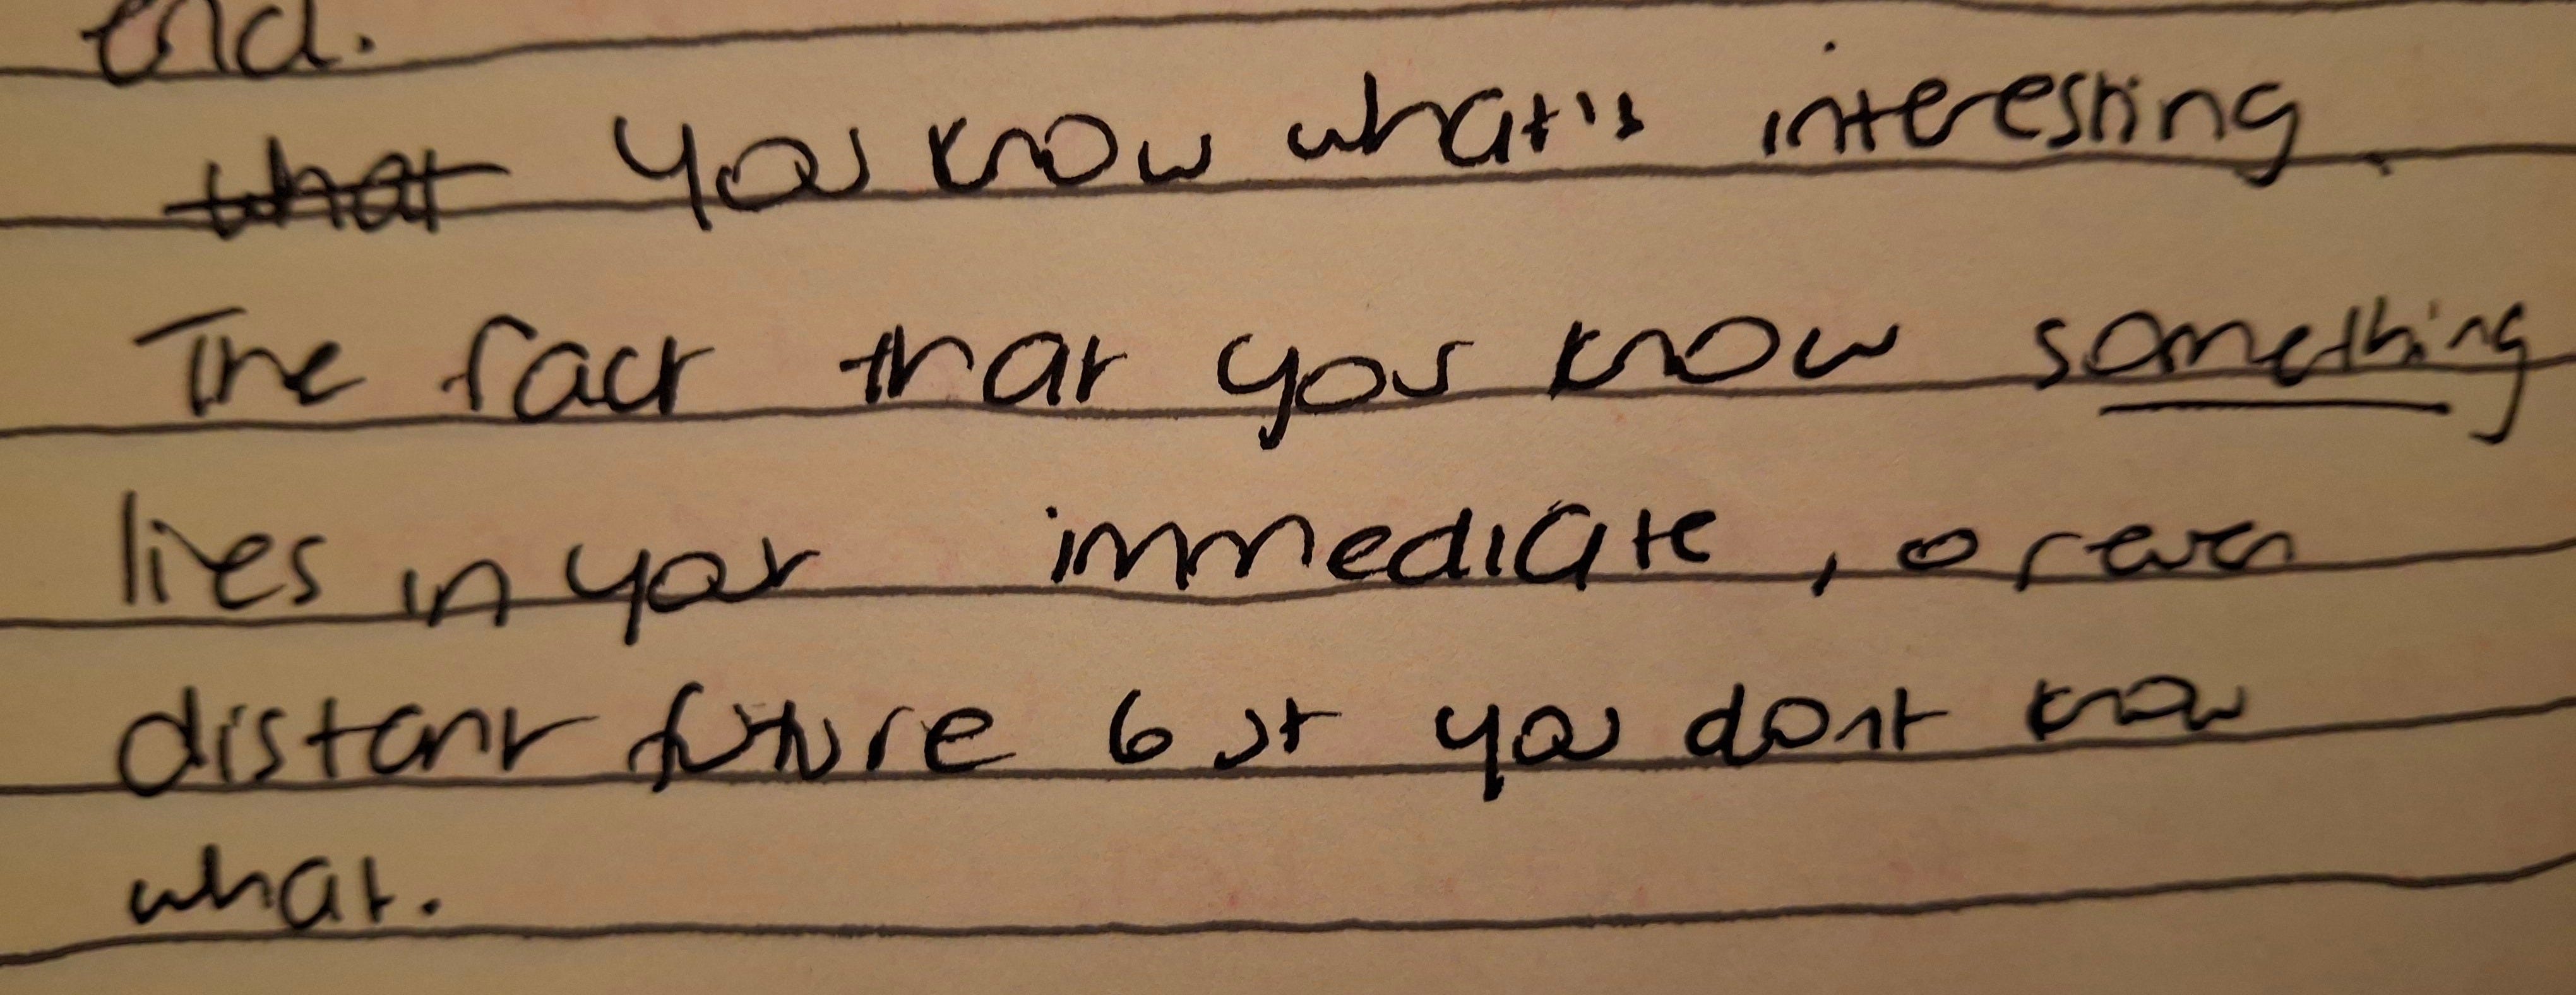 end.
~~what~~ You know what's interesting.
The fact that you know something
lies in your immediate, or even
distant future but you dont know
what.